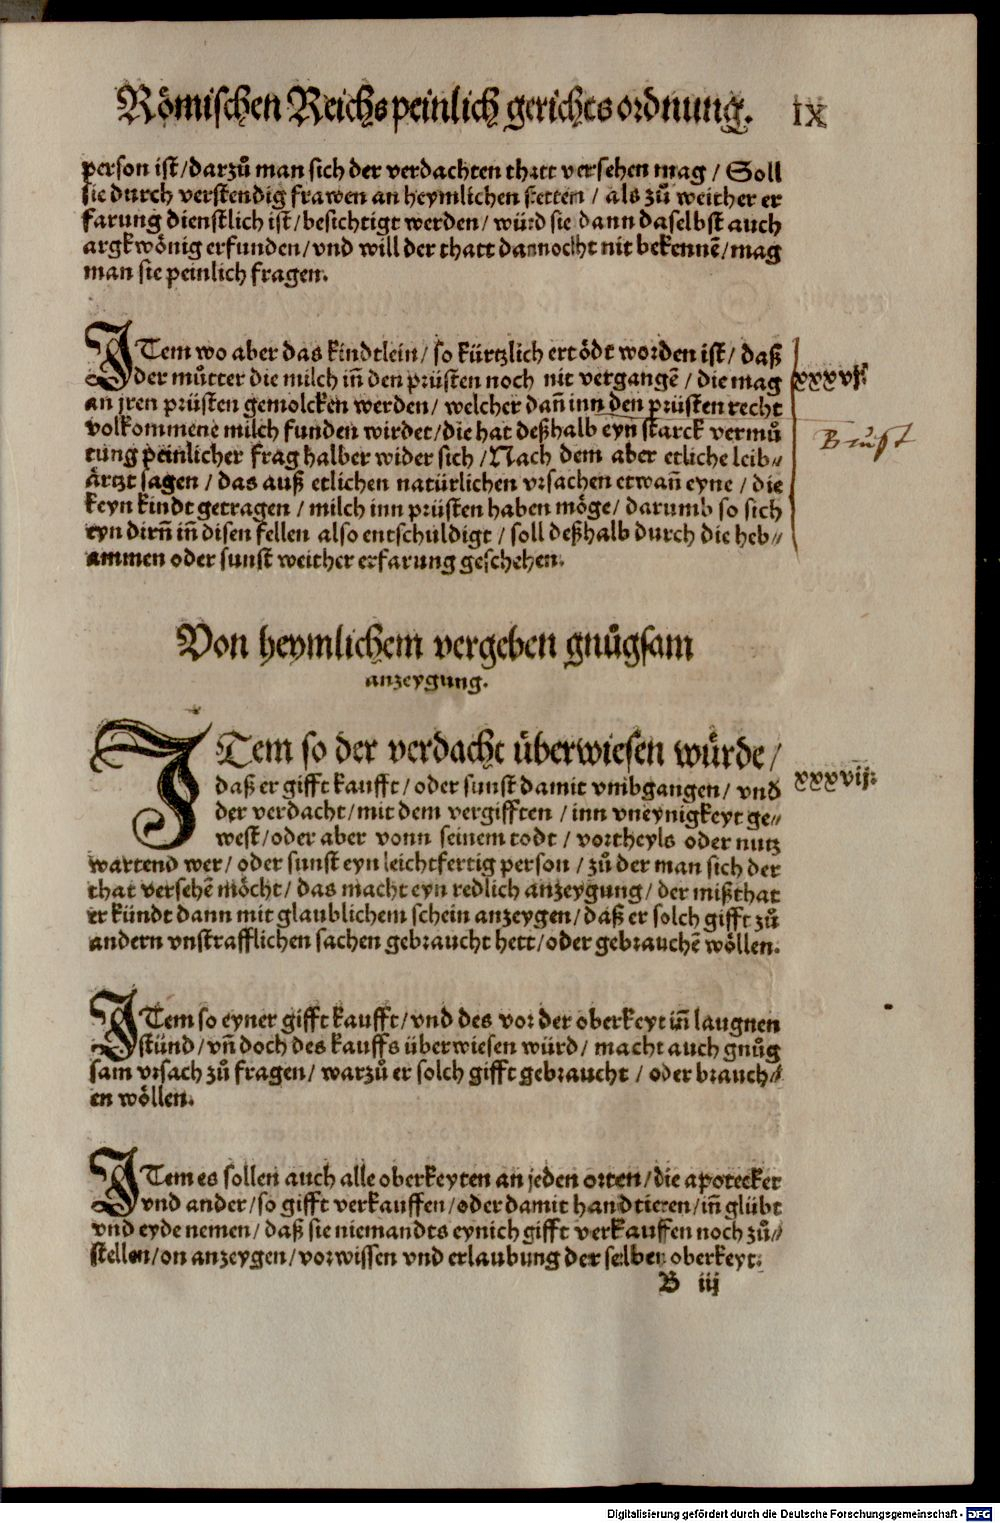 Römischen Reichs peinlich gerichts ordnung. IX
person ist/darzů man sich der verdachten thatt versehen mag / Soll
sie durch verstendig frawen an heymlichen stetten / als zů weither er
farung dienstlich ist/besichtigt werden/ würd sie dann daselbst auch
argkwönig erfunden/vnd will der thatt dannocht nit bekennē/mag
man sie peinlich fragen.
ITem wo aber das kindtlein/ so kürtzlich ertödt worden ist/ daß
der můtter die milch iñ den prüsten noch nit vergangē / die mag
xxxvj.
an jren prüsten gemolcken werden/ welcher dañ inn den prüsten recht
volkommene milch funden wirdet/die hat deßhalb eyn starck vermů
Brust
tung peinlicher frag halber wider sich / Nach dem aber etliche leib⸗
ärtzt sagen / das auß etlichen natürlichen vrsachen etwañ eyne / die
keyn kindt getragen / milch inn prüsten haben möge/ darumb so sich
eyn dirñ iñ disen fellen also entschuldigt / soll deßhalb durch die heb⸗
ammen oder sunst weither erfarung geschehen.
Von heymlichem vergeben gnůgsam
anzeygung.
ITem so der verdacht überwiesen würde/
daß er gifft kaufft/ oder sunst damit vmbgangen/ vnd
xxxvij.
der verdacht/mit dem vergifften / inn vneynigkeyt ge⸗
west/oder aber vonn seinem todt / vortheyls oder nutz
wartend wer/ oder sunst eyn leichtfertig person / zů der man sich der
that versehē möcht/ das macht eyn redlich anzeygung/ der mißthat
er kündt dann mit glaublichem schein anzeygen/ daß er solch gifft zů
andern vnstrafflichen sachen gebraucht hett/oder gebrauchē wöllen.
ITem so eyner gifft kaufft/vnd des vor der oberkeyt iñ laugnen
stünd/vñ doch des kauffs überwiesen würd/ macht auch gnůg
sam vrsach zů fragen/ warzů er solch gifft gebraucht / oder brauch⸗
en wöllen.
ITem es sollen auch alle oberkeyten an jeden orten/die apotecker
vnd ander/so gifft verkauffen/oder damit handtieren/iñ glübt
vnd eyde nemen/ daß sie niemandts eynich gifft verkauffen noch zů⸗
stellen/on anzeygen/vorwissen vnd erlaubung der selben oberkeyt.
B iij
Digitalisierung gefördert durch die Deutsche Forschungsgemeinschaft - DFG